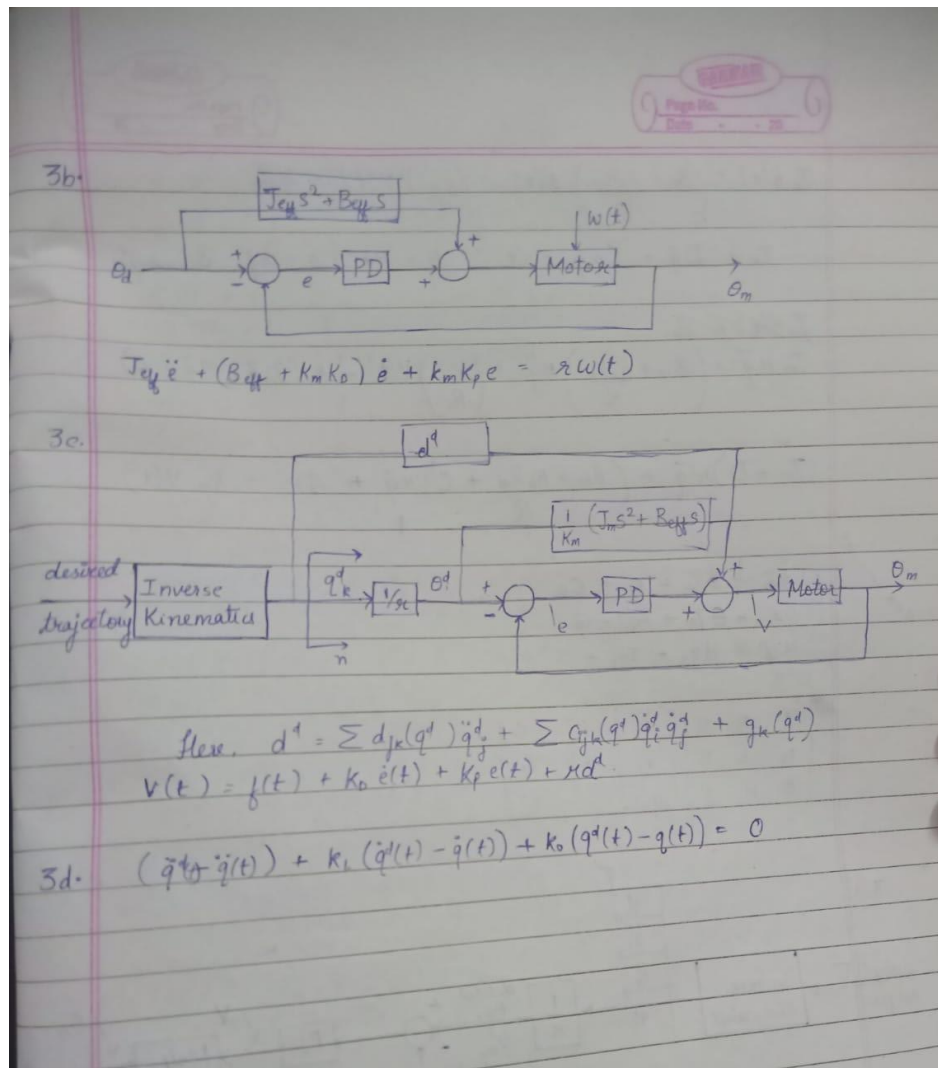 Page No.
Date - - 20
3b.
J_eff s² + B_eff s
w(t)
θ_d
+
-
e
PD
+
+
Motor
θ_m
J_eff ë + (B_eff + K_m K_D) ė + k_m K_p e = r w(t)
3c.
d^d
1/K_m (J_m s² + B_eff s)
desired
trajectory
Inverse
Kinematics
q_k^d
n
1/r
θ^d
+
-
e
PD
+
+
V
Motor
θ_m
Here, d^d = Σ d_jk(q^d) q̈_j^d + Σ c_ijk(q^d) q̇_i^d q̇_j^d + g_k(q^d)
V(t) = f(t) + K_D ė(t) + K_p e(t) + r d^d
3d. (q̈^d - q̈(t)) + k₁ (q̇^d(t) - q̇(t)) + k₀ (q^d(t) - q(t)) = 0